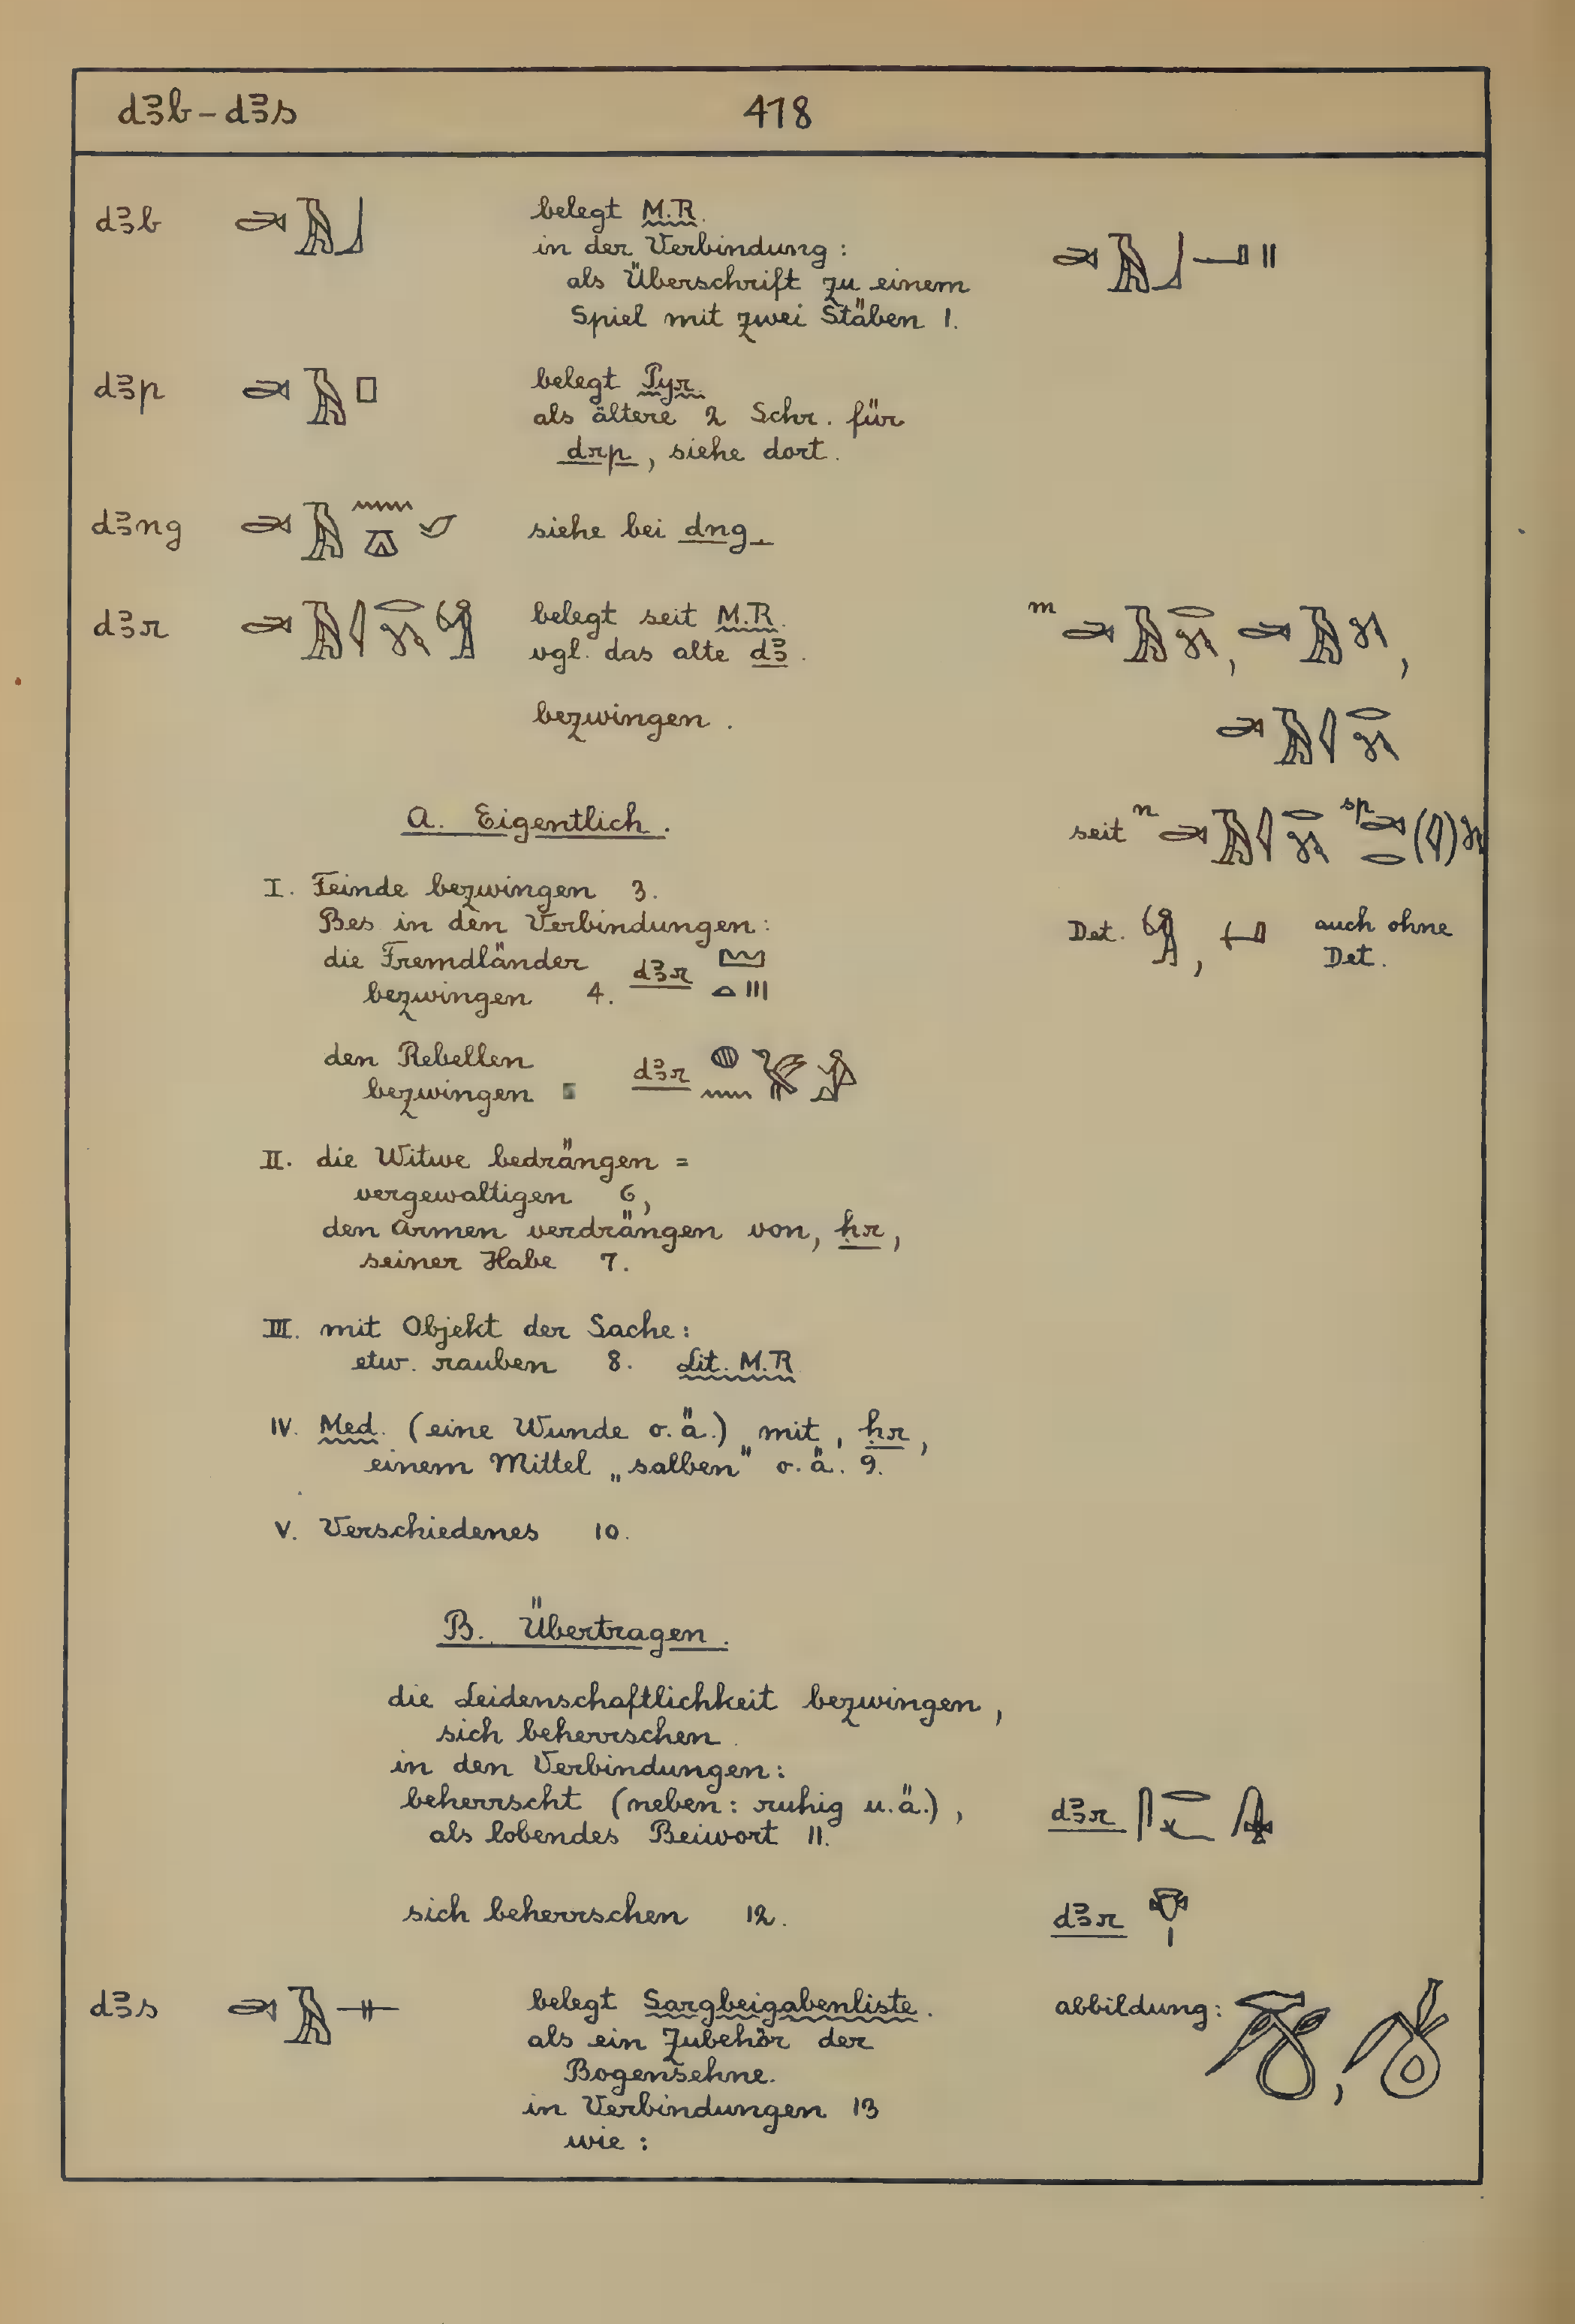 dꜣb – dꜣs 418
dꜣb 𓂧𓄿𓃀 belegt M.R.
in der Verbindung:
als Überschrift zu einem 𓂧𓄿𓃀𓂝𓏮
Spiel mit zwei Stäben 1.
dꜣp 𓂧𓄿𓊪 belegt Pyr.
als ältere 2 Schr. für
drp, siehe dort.
dꜣng 𓂧𓄿𓈖𓎼 siehe bei dng.
dꜣr 𓂧𓄿𓇋𓂋 belegt seit M.R.
vgl. das alte dꜣ.
bezwingen.
A. Eigentlich.
seit n sp
I. Feinde bezwingen 3.
Bes in den Verbindungen:
Det. auch ohne
Det.
die Fremdländer dꜣr 𓈉𓏏𓏥
bezwingen 4.
den Rebellen dꜣr
bezwingen
II. die Witwe bedrängen =
vergewaltigen 6,
den Armen verdrängen von, ḥr,
seiner Habe 7.
III. mit Objekt der Sache:
etw. rauben 8. Lit. M.R
IV. Med. (eine Wunde o.ä.) mit, ḥr,
einem Mittel „salben" o.ä. 9.
V. Verschiedenes 10.
B. Übertragen.
die Leidenschaftlichkeit bezwingen,
sich beherrschen.
in den Verbindungen:
beherrscht (neben: ruhig u.ä.), dꜣr
als lobendes Beiwort 11.
sich beherrschen 12. dꜣr 𓄣𓏤
dꜣs 𓂧𓄿𓊃 belegt Sargbeigabenliste. abbildung:
als ein Zubehör der
Bogensehne.
in Verbindungen 13
wie: